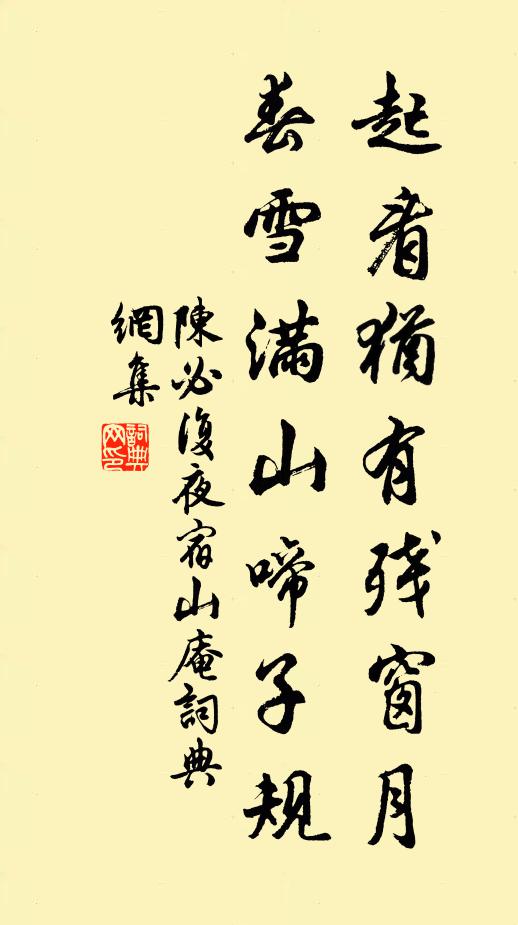 起看猶有残窗月
春雪满山啼子規
陳必復夜宿山庵詞典
網集
詞典
网印